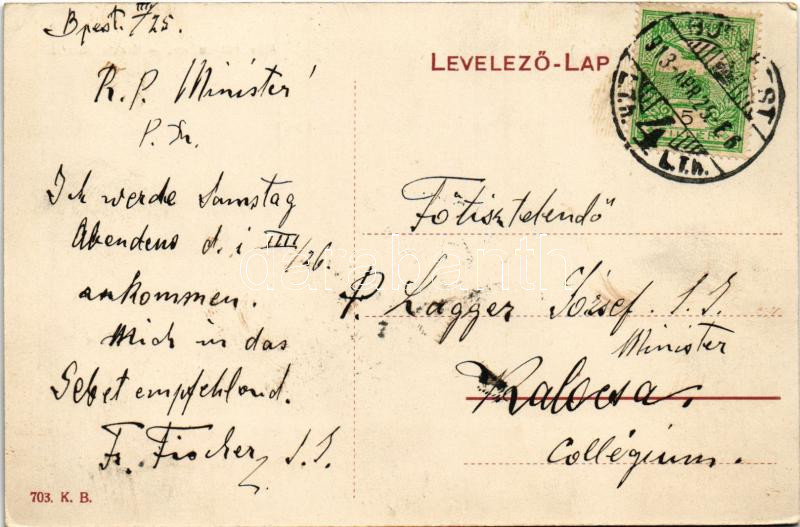 Bpest. IIII/25.
R. P. Minister!
P. Chr.
Ich werde Samstag
Abendens d. i. IIII/26.
ankommen.
Mich in das
Gebet empfehlend.
Fr. Fischer S. J.
703. K. B.
LEVELEZŐ-LAP
BUDAPEST
913 APR 25
L.T.h.
5
Főtisztelendő
P. Lagger József. S. J.
Minister
Kalocsa,
Collégium.
darabanth